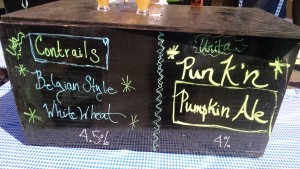 Contrails
Belgian Style
White Wheat
4.5%
Uinta
Punk'n
Pumpkin Ale
4%